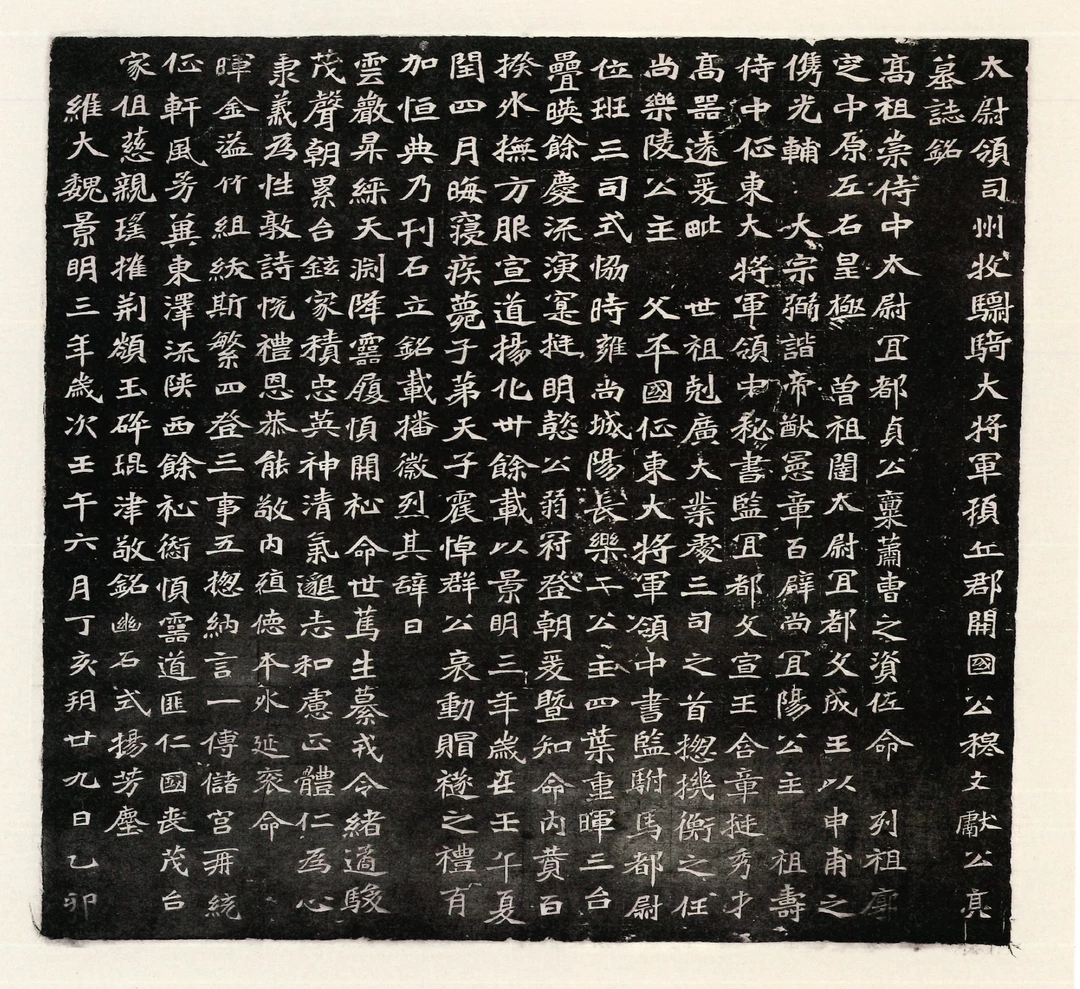 太尉領司州牧驃騎大將軍頓丘郡開國公穆文獻公亮
墓誌銘
高祖崇侍中太尉冝都貞公稟蕭曹之資佐命　列祖廓
定中原左右皇極　曾祖闥太尉冝都文成王以申甫之
儁光輔　大宗弼諧帝猷憲章百辟尚冝陽公主　祖壽
侍中征東大將軍領中秘書監冝都文宣王含章挺秀才
高器遠爰毗　世祖剋廣大業處三司之首揔機衡之任
尚樂陵公主　父平國征東大將軍領中書監駙馬都尉
位班三司式協時雍尚城陽長樂二公主四葉重暉三台
疊暎餘慶流演寔挺明懿公弱冠登朝爰暨知命內賛百
揆外撫方服宣道揚化卅餘載以景明三年歲在壬午夏
閏四月晦寢疾薨于第天子震悼群公哀動賵襚之禮有
加恒典乃刊石立銘載播徽烈其辭曰
雲巖昇綵天淵降靈履順開祉命世篤生纂戎令緒邁駿
茂聲朝累台鉉家積忠英神清氣邈志和慮正體仁為心
秉義為性敦詩悅禮恩恭能敬內殖德本外延袞命
暉金溢竹組紱斯繁四登三事五揔納言一傅儲宮再統
征軒風芳冀東澤流陝西餘祉衒順靈道匪仁國喪茂台
家俎慈親瑤摧荊巔玉碎琨津敬銘幽石式揚芳塵
維大魏景明三年歲次壬午六月丁亥朔廿九日乙卯